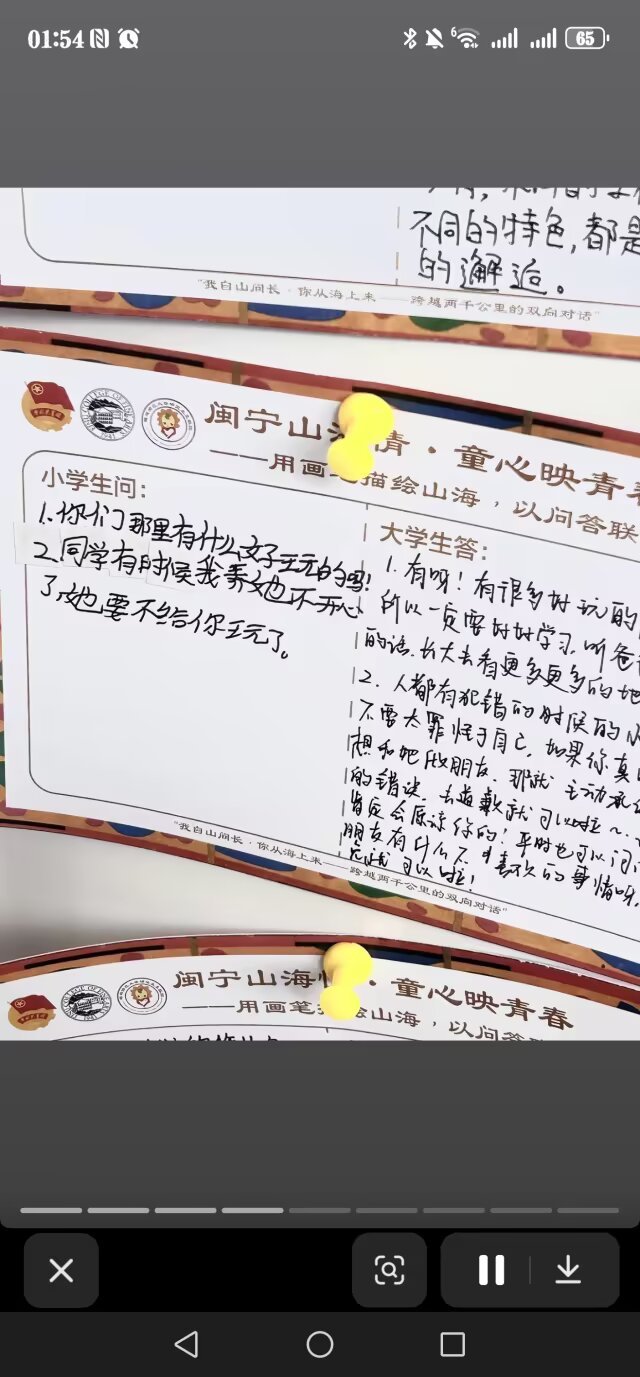 01:54
6
65
不同的特色,都是
的邂逅。
"我自山间长·你从海上来——跨越两千公里的双向对话"
闽宁山海情·童心映青春
——用画笔描绘山海,以问答联
小学生问:
1.你们那里有什么好玩的吗!
2.同学有时候我弄她不开心
了,她要不给你玩了。
大学生答:
1.有呀!有很多好玩的
所以一定要好好学习,听爸
的话,长大去看更多更多的地
2.人都有犯错的时候的
不要太罪怪于自己,如果你真
想和她做朋友,那就主动承
的错误,去道歉就可以啦~
肯定会原谅你的!平时也可以问
朋友有什么不喜欢的事情呀,
就可以啦!
"我自山间长·你从海上来——跨越两千公里的双向对话"
闽宁山海情·童心映青春
——用画笔描绘山海,以问答联